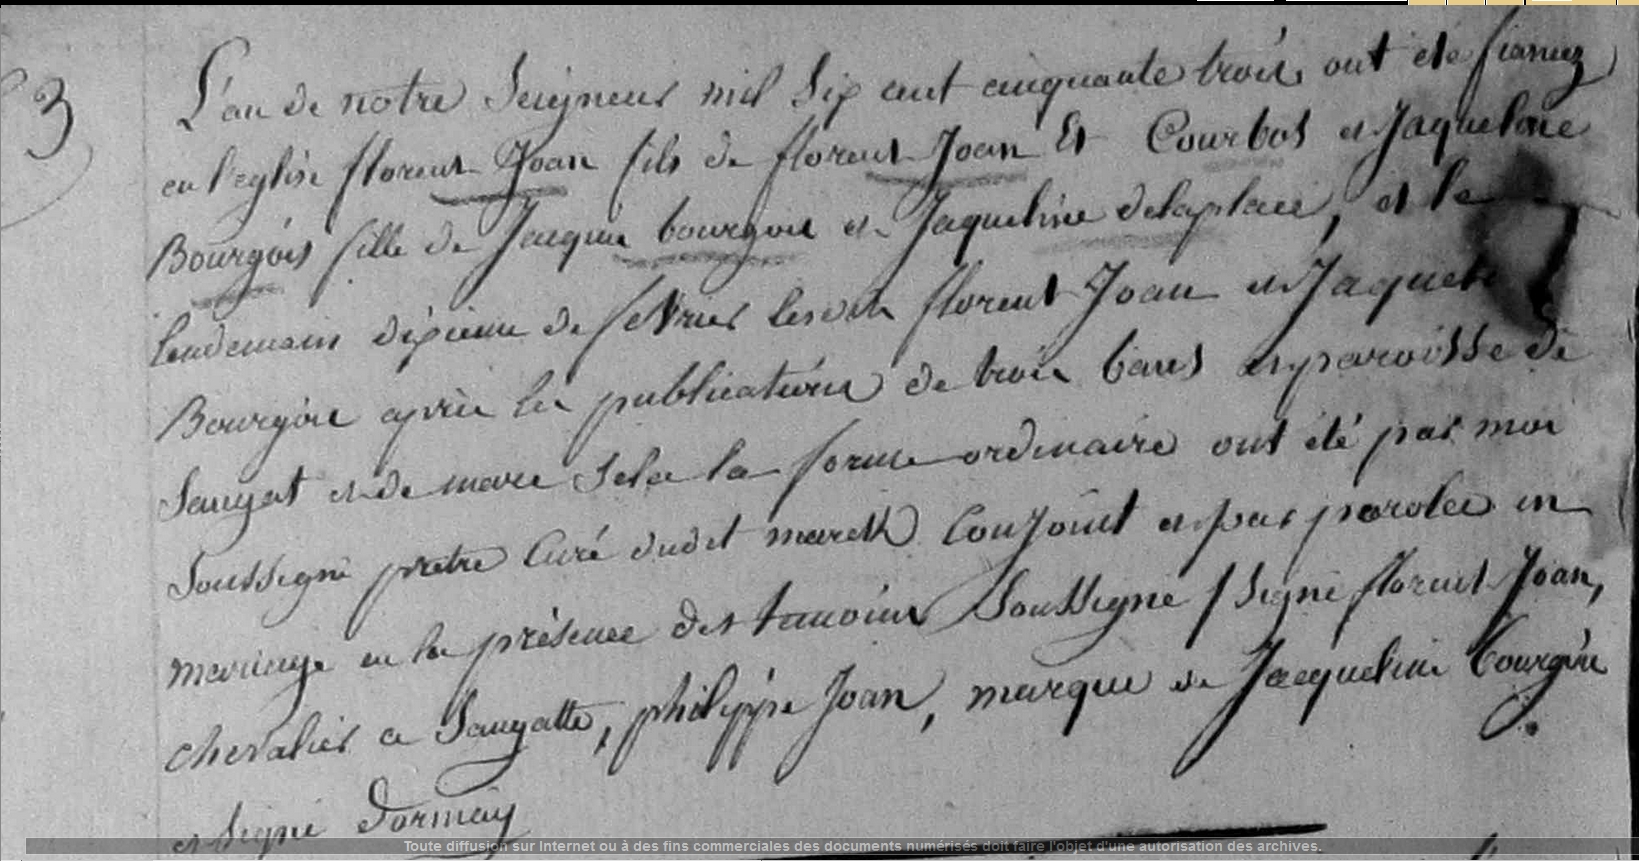 3
L'an de notre Seigneur mil Six cent cinquante trois ont ete fiancez
en l'eglise florent Joan fils de florent Joan Et Courbot et Jaqueline
Bourgois fille de Jacques bourgois et Jaqueline delaplace, et le
lendemain dixieme de fevrier lesdits florent Joan et Jaqueline
Bourgois après les publications de trois bans es paroisse de
Sangat et de marc Selon la forme ordinaire ont été par moi
Soussigné pretre Curé dudit marck Conjoint et par paroles en
mariage en la présence des temoins Soussigné / Signé florent Joan,
chevalier a Sangatte, philippe Joan, marque de Jacqueline bourgois
et Signé Dormay
Toute diffusion sur Internet ou à des fins commerciales des documents numérisés doit faire l'objet d'une autorisation des archives.